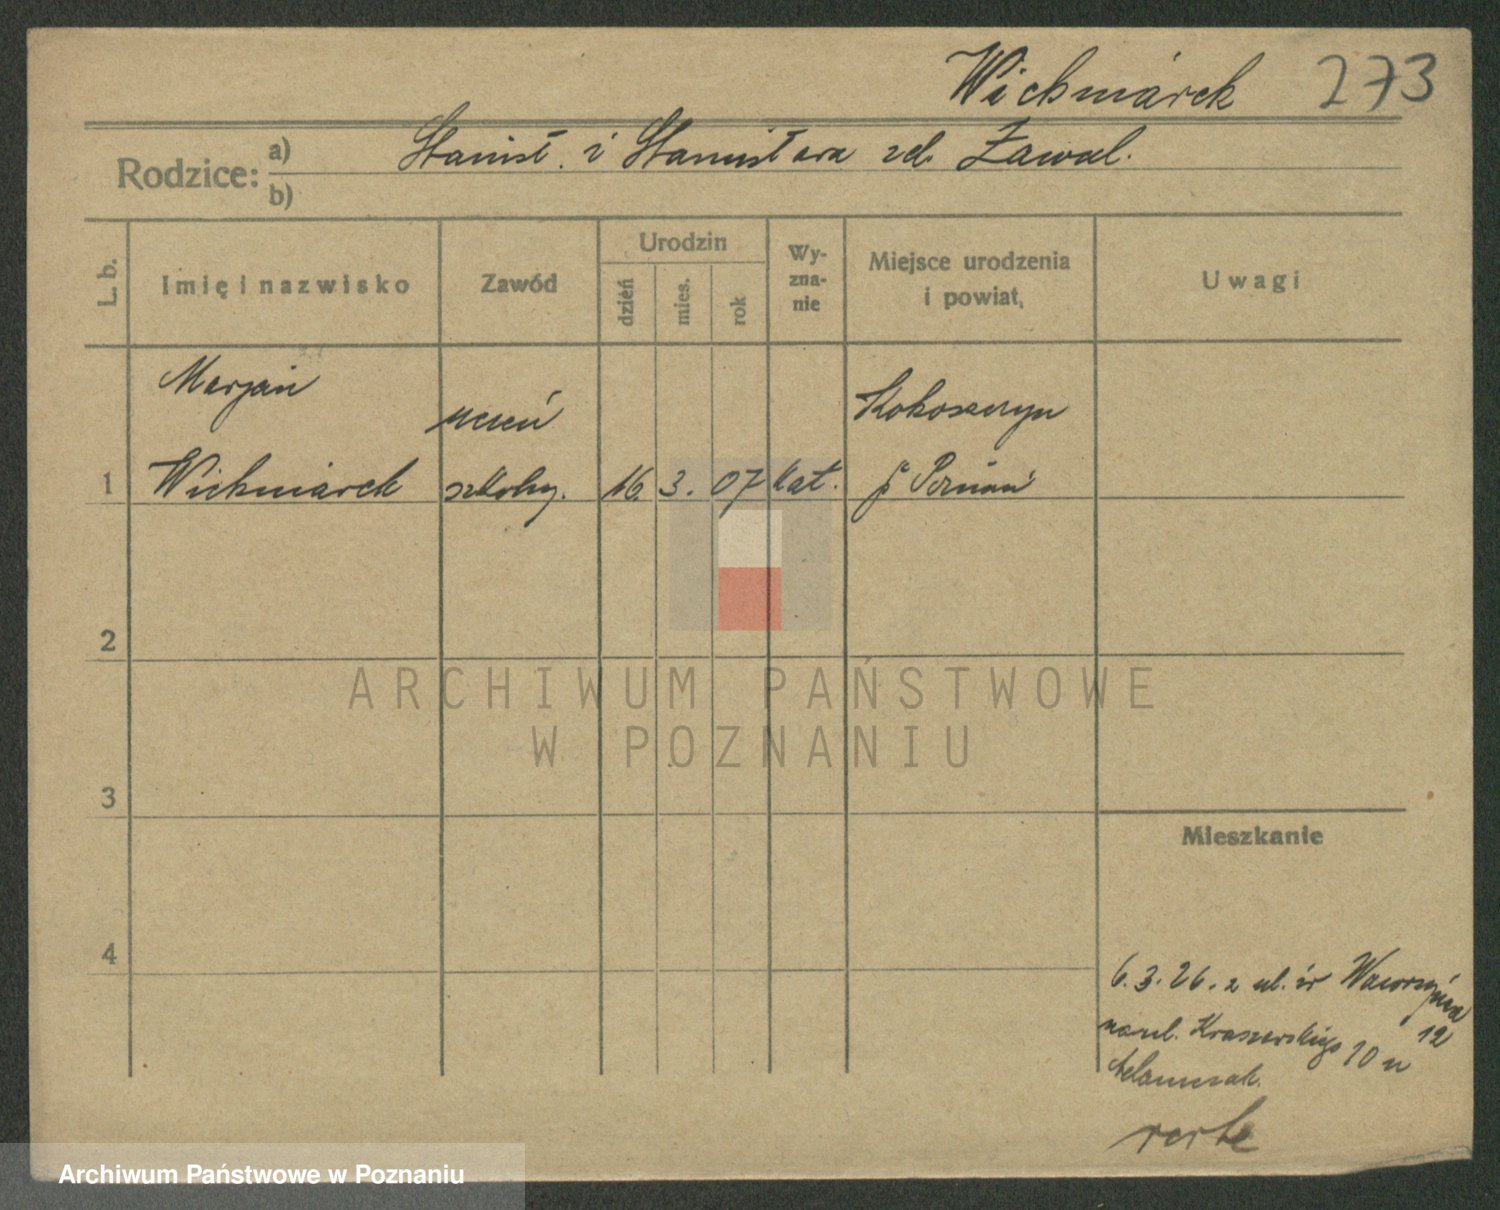 Wichmárek 273
Rodzice: a) Stanisł. i Stanisława zd. Zawal.
b)
L. b. Imię i nazwisko Zawód Urodzin dzień mies. rok Wy-zna-nie Miejsce urodzenia i powiat, Uwagi
Marjan uczeń Kokoszczyn
1 Wichmárek szkolny. 16. 3. 07 kat. p Poznań
2
ARCHIWUM PAŃSTWOWE
W POZNANIU
3
Mieszkanie
4
6.3.26. z ul. św Wawrzyńca 12
na ul. Kraszewskiego 10 u
Adamczak.
verte
Archiwum Państwowe w Poznaniu